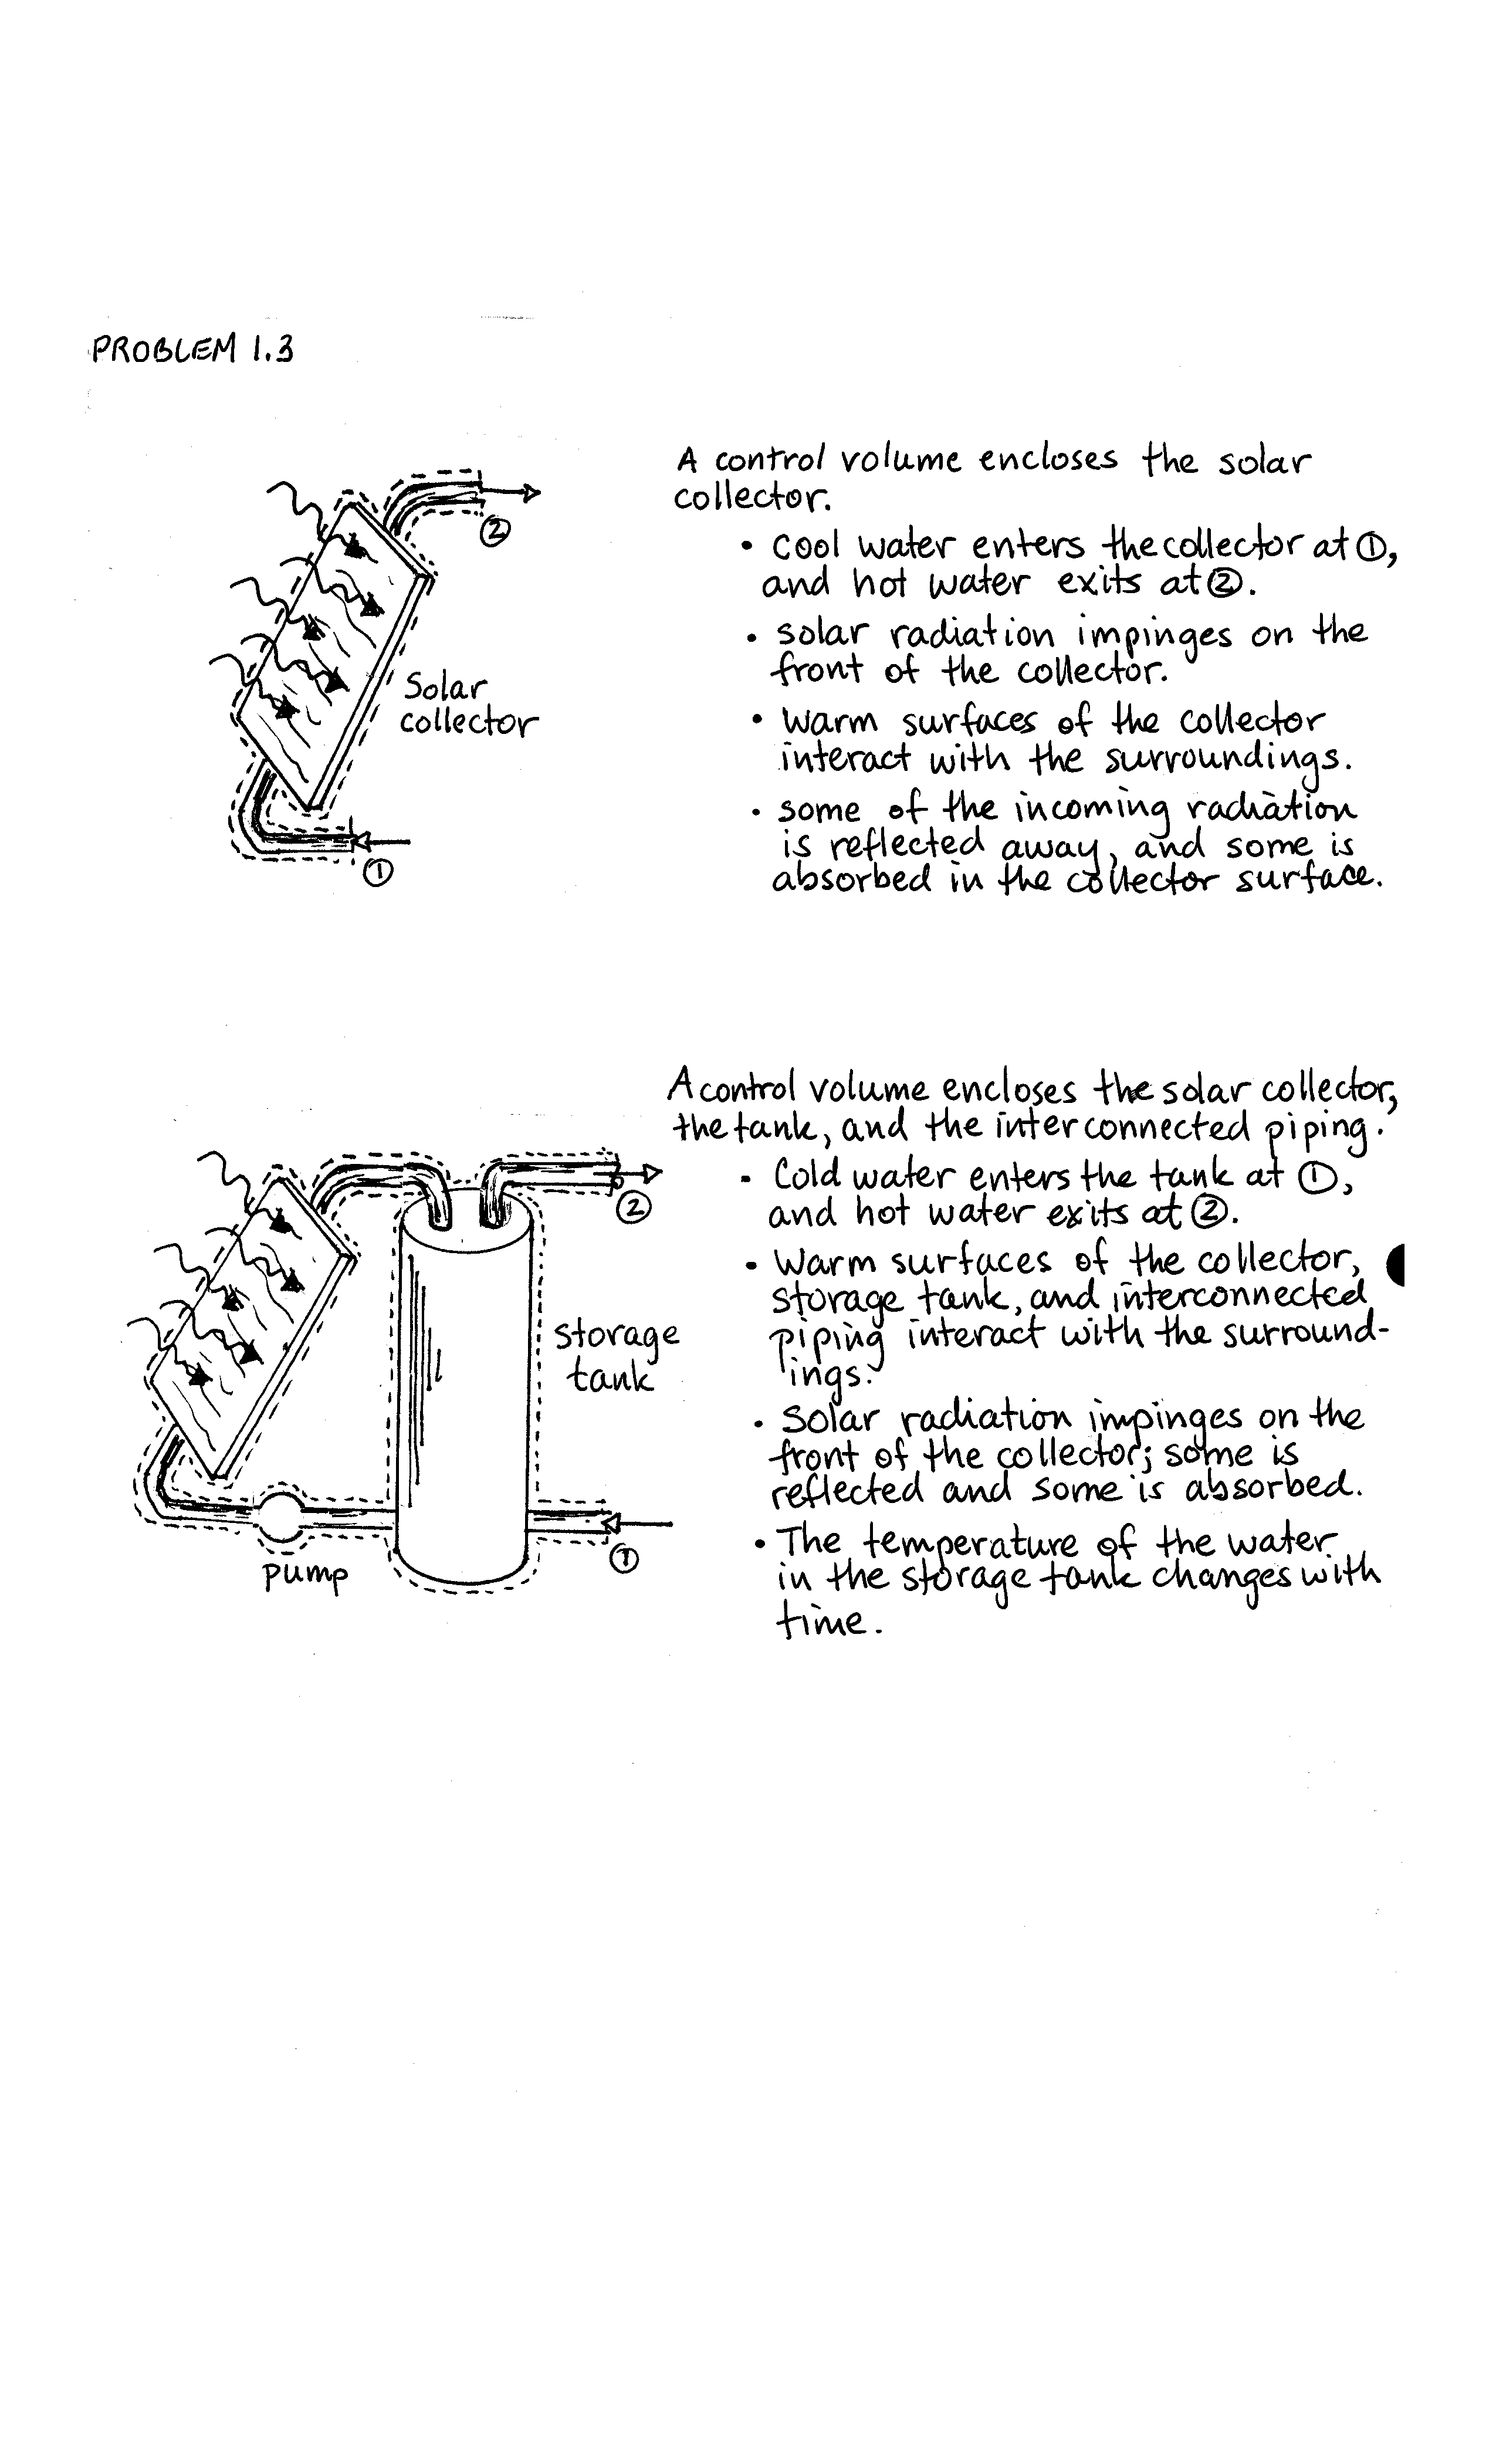 PROBLEM 1.3
A control volume encloses the solar
collector.
• Cool water enters the collector at ①,
and hot water exits at ②.
• Solar radiation impinges on the
front of the collector.
• Warm surfaces of the collector
interact with the surroundings.
• some of the incoming radiation
is reflected away, and some is
absorbed in the collector surface.
②
Solar
collector
①
A control volume encloses the solar collector,
the tank, and the interconnected piping.
• Cold water enters the tank at ①,
and hot water exits at ②.
• Warm surfaces of the collector,
storage tank, and interconnected
piping interact with the surround-
ings.
• Solar radiation impinges on the
front of the collector; some is
reflected and some is absorbed.
• The temperature of the water
in the storage tank changes with
time.
②
storage
tank
①
pump